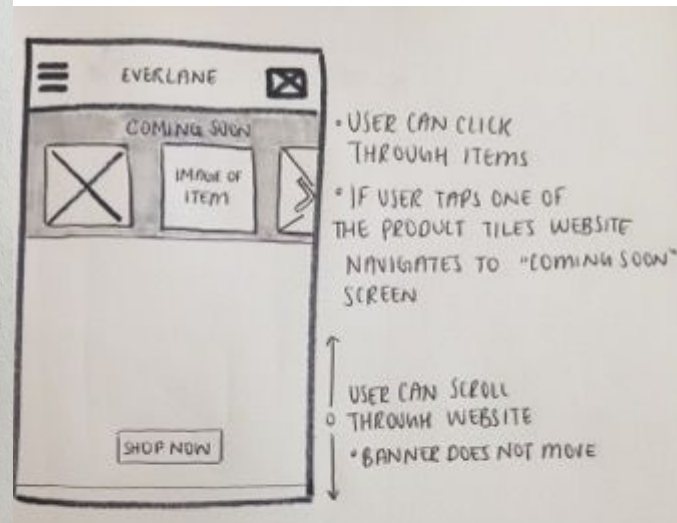 EVERLANE
COMING SOON
IMAGE OF
ITEM
SHOP NOW
• USER CAN CLICK
THROUGH ITEMS
• IF USER TAPS ONE OF
THE PRODUCT TILES WEBSITE
NAVIGATES TO "COMING SOON"
SCREEN
USER CAN SCROLL
THROUGH WEBSITE
• BANNER DOES NOT MOVE